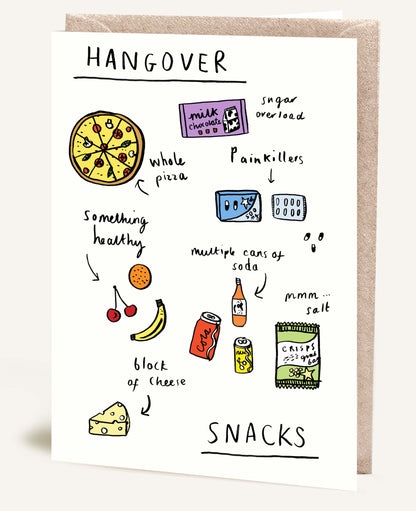 HANGOVER
milk
chocolate
sugar
overload
whole
pizza
Painkillers
Something
healthy
multiple cans of
soda
mmm...
salt
Cola
CRISPS
block
of cheese
SNACKS